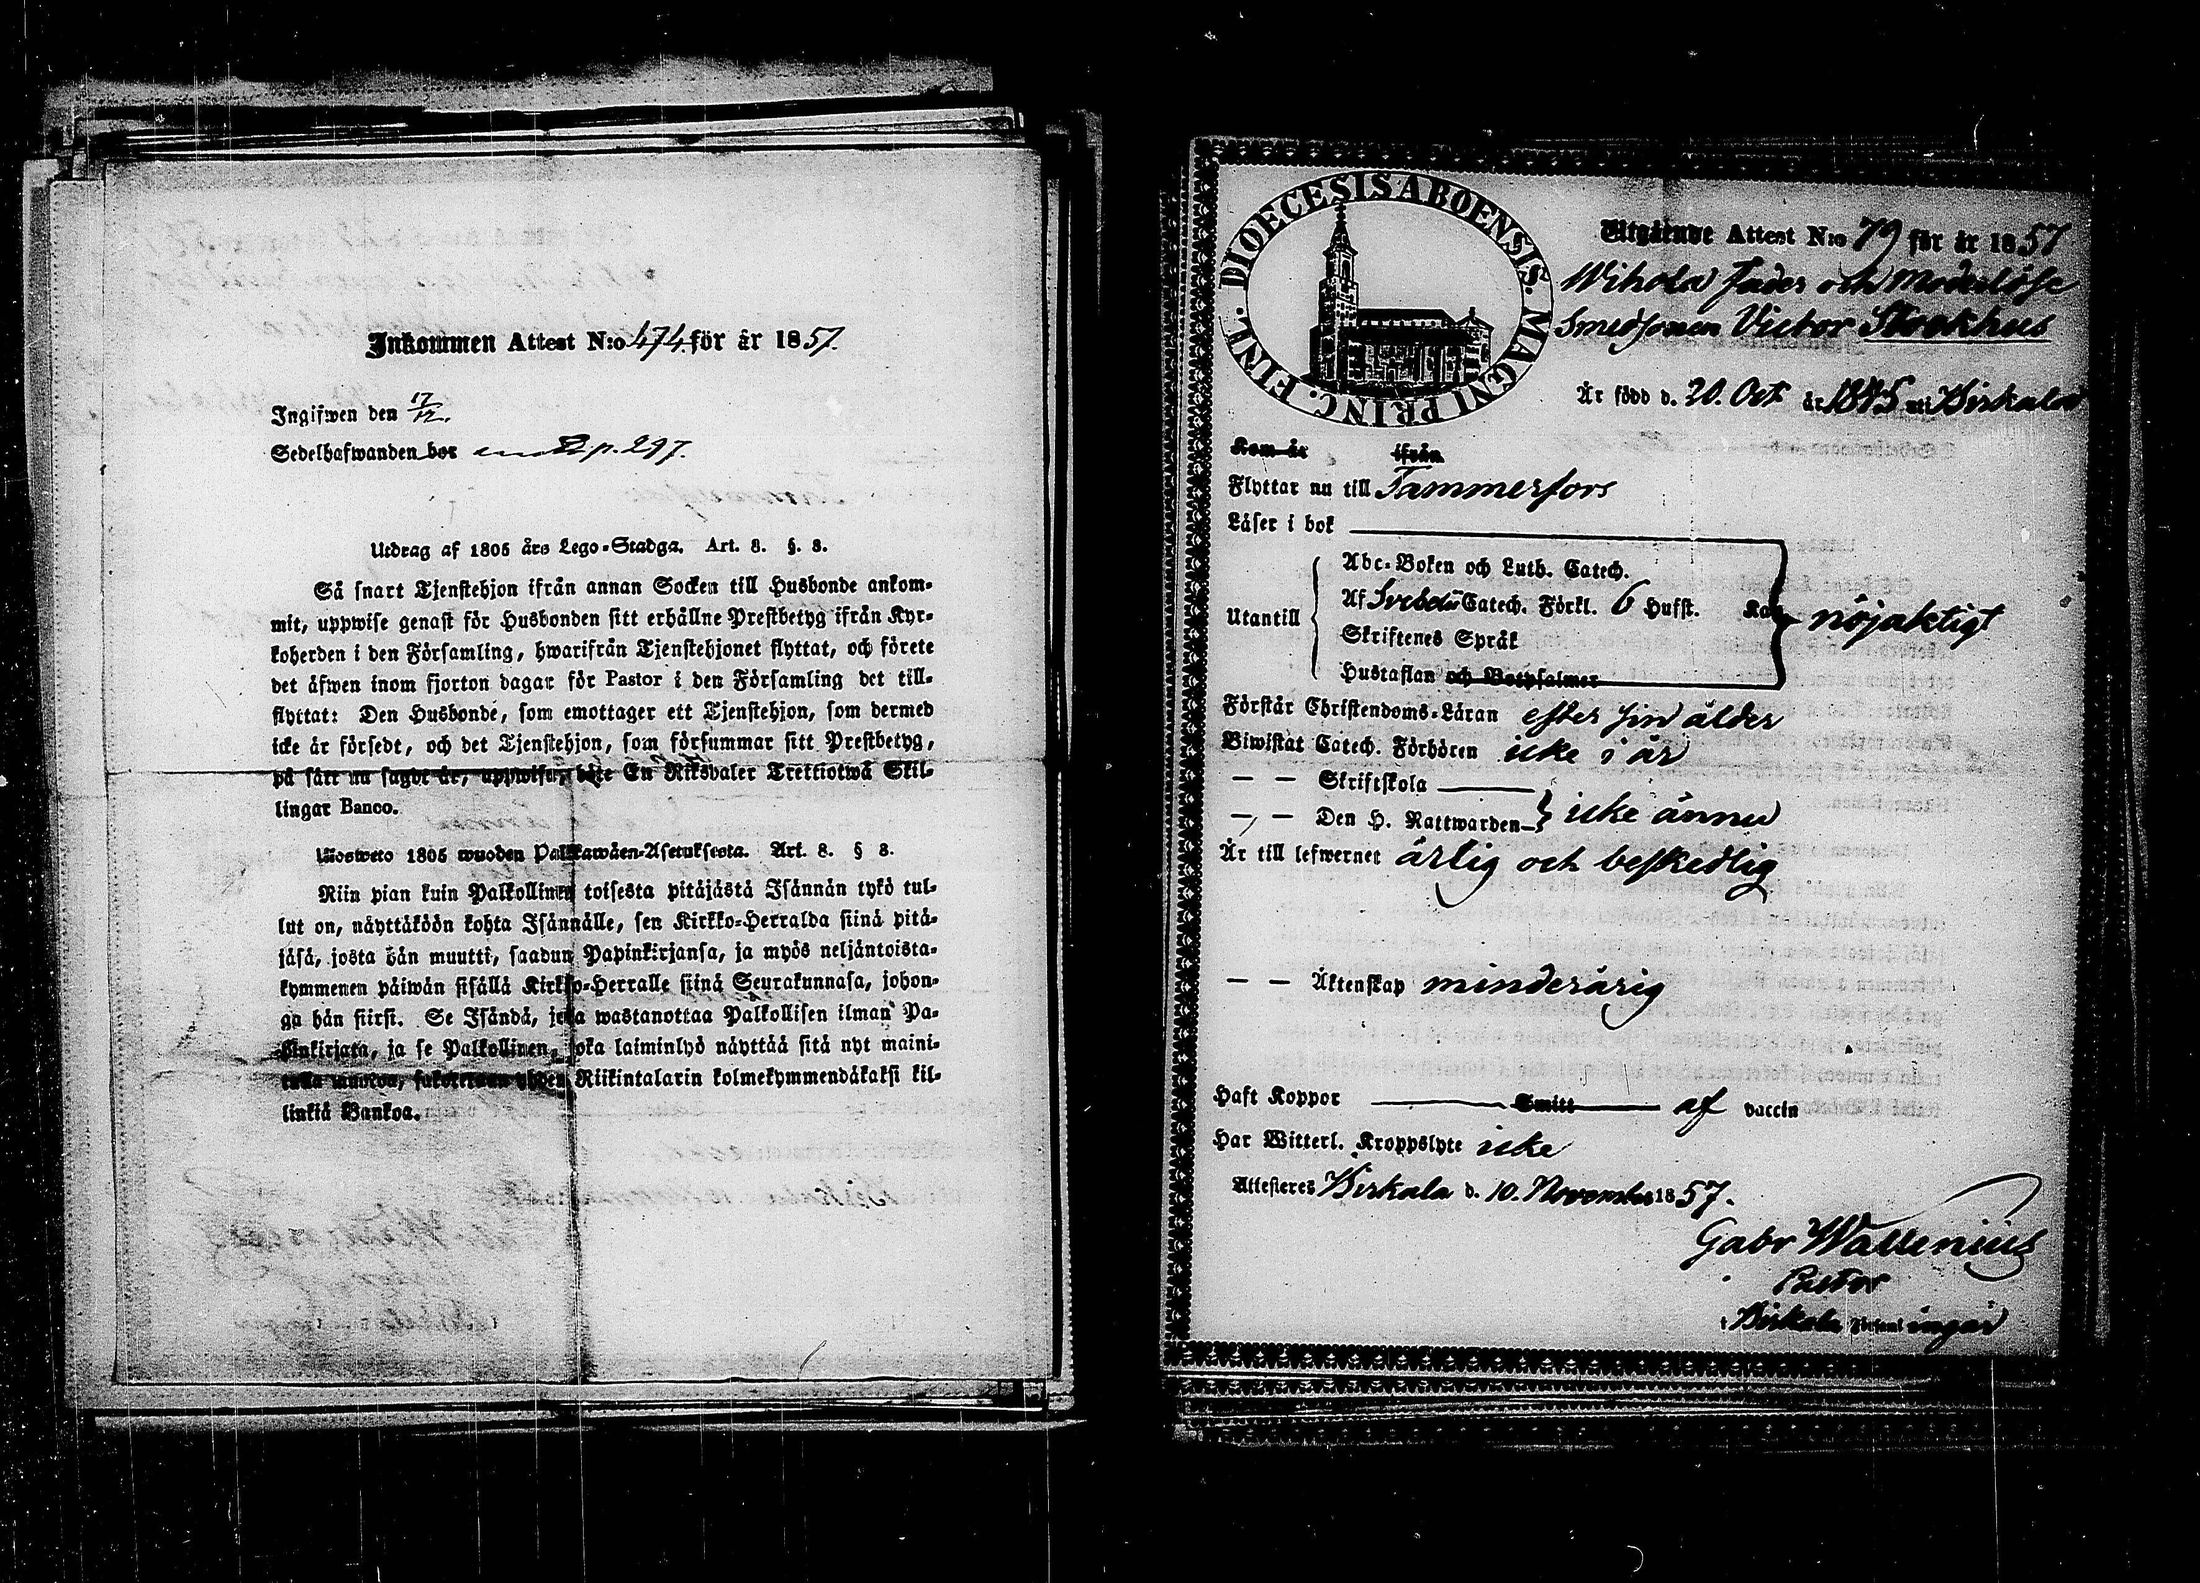 Inkommen Attest N:o 474. för år 1857.
Ingifwen den 17/12.
Sedelhafwanden bor p. 297.
Utdrag af 1805 års Lego-Stadga. Art. 8. §. 8.
Så snart Tjenstehjon ifrån annan Socken till Husbonde ankom-
mit, uppwise genast för Husbonden sitt erhållne Prestbetyg ifrån Kyr-
koherden i den Församling, hwarifrån Tjenstehjonet flyttat, och förete
det äfwen inom fjorton dagar för Pastor i den Församling det till-
flyttat: Den Husbonde, som emottager ett Tjenstehjon, som dermed
icke är försedt, och det Tjenstehjon, som försummar sitt Prestbetyg,
på sätt nu sagdt är, uppwisa, böte En Riksdaler Trettiotwå Skil-
lingar Banco.
Ulosweto 1805 wuoden Palkkawäen-Asetuksesta. Art. 8. § 8.
Niin pian kuin Palkollinen toisesta pitäjästä Isännän tykö tul-
lut on, näyttäköön kohta Isännälle, sen Kirkko-Herralda siinä pitä-
jäsä, josta hän muutti, saadun Papinkirjansa, ja myös neljäntoista-
kymmenen päiwän sisällä Kirkko-Herralle siinä Seurakunnasa, johon-
ga hän siirsi. Se Isändä, joka wastanottaa Palkollisen ilman Pa-
pinkirjata, ja se Palkollinen, joka laiminlyö näyttää sitä nyt maini-
tulla muodon, sakotetaan yhden Riikintalarin kolmekymmendäkaksi kil-
linkiä Bankoa.
DIOECESIS ABOENSIS. MAGNI PRINC. FINL.
Utgående Attest N:o 79 för år 1857
Wihola Fader och Moderlöse
Smedsonen Victor Stockhus
Är född d. 20. Oct år 1845 uti Birkala
Kom år ifrån
Flyttar nu till Tammerfors
Läser i bok
Abc-Boken och Luth. Catech.
Utantill Af Svebelii Catech. Förkl. 6 Hufst. Kan nöjaktigt
Skriftenes Språk
Hustaflan och Botpsalmer
Förstår Christendoms-Läran efter sin ålder
Biwistat Catech. Förhören icke i år
— — Skriftskola
— — Den H. Nattwarden icke ännu
Är till lefwernet ärlig och beskedlig
— — Äktenskap minderårig
Haft Koppor Smitt af vaccin
Har Witterl. Kroppslyte icke
Attesteres Birkala d. 10. November 1857.
Gabr Wallenius
Pastor
i Birkala Församlingar